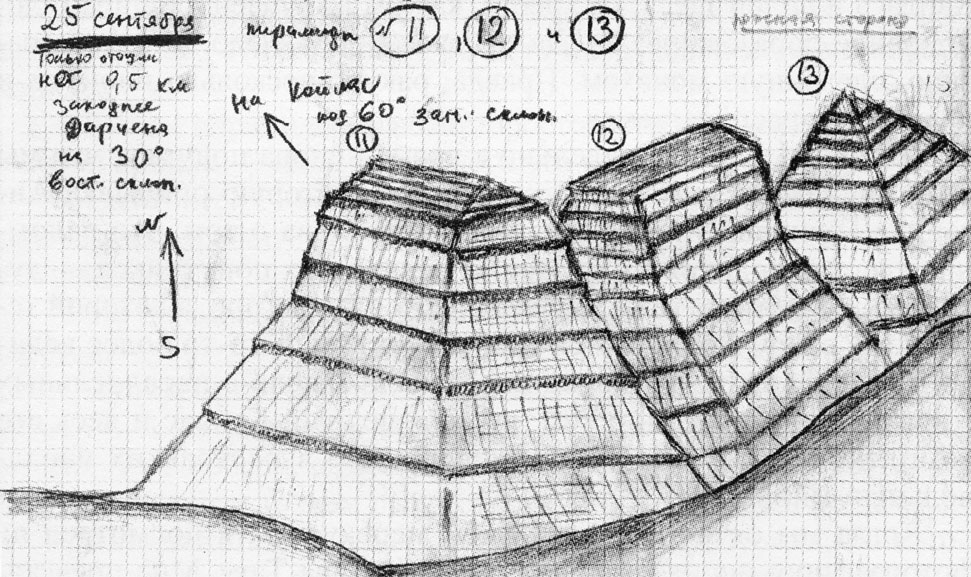 25 сентября
пирамиды №11, 12 и 13
южная сторона
только отошли
на 0,5 км
западнее
Дарчена
на 30°
вост. склон.
на Кайлас
под 60° зап. склон.
11
12
13
N
S